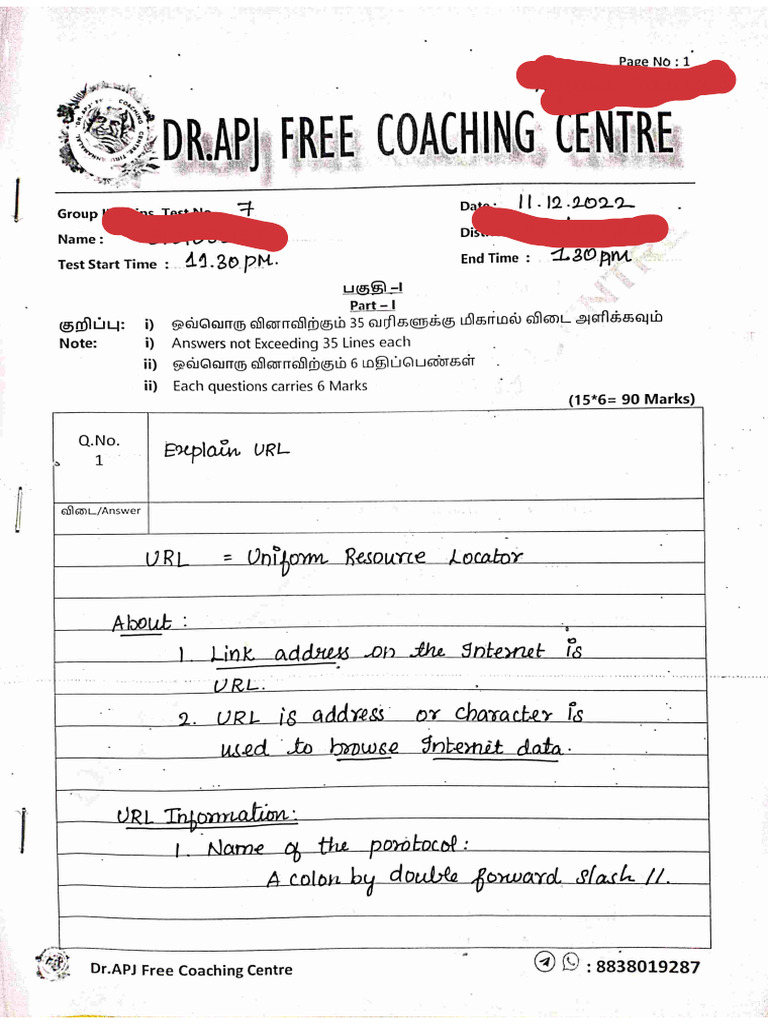 Page No : 1
DR.APJ FREE COACHING CENTRE
Group Test No 7
Date : 11.12.2022
Name :
Dist
Test Start Time : 11.30 PM.
End Time : 1.30 PM
பகுதி –I
Part – I
குறிப்பு: i) ஒவ்வொரு வினாவிற்கும் 35 வரிகளுக்கு மிகாமல் விடை அளிக்கவும்
Note: i) Answers not Exceeding 35 Lines each
ii) ஒவ்வொரு வினாவிற்கும் 6 மதிப்பெண்கள்
ii) Each questions carries 6 Marks
(15*6= 90 Marks)
Q.No.
1
Explain URL
விடை/Answer
URL = Uniform Resource Locator
About :
1. Link address on the Internet is
URL.
2. URL is address or character is
used to browse Internet data.
URL Information:
1. Name of the porotocol :
A colon by double forward slash //.
Dr.APJ Free Coaching Centre
: 8838019287